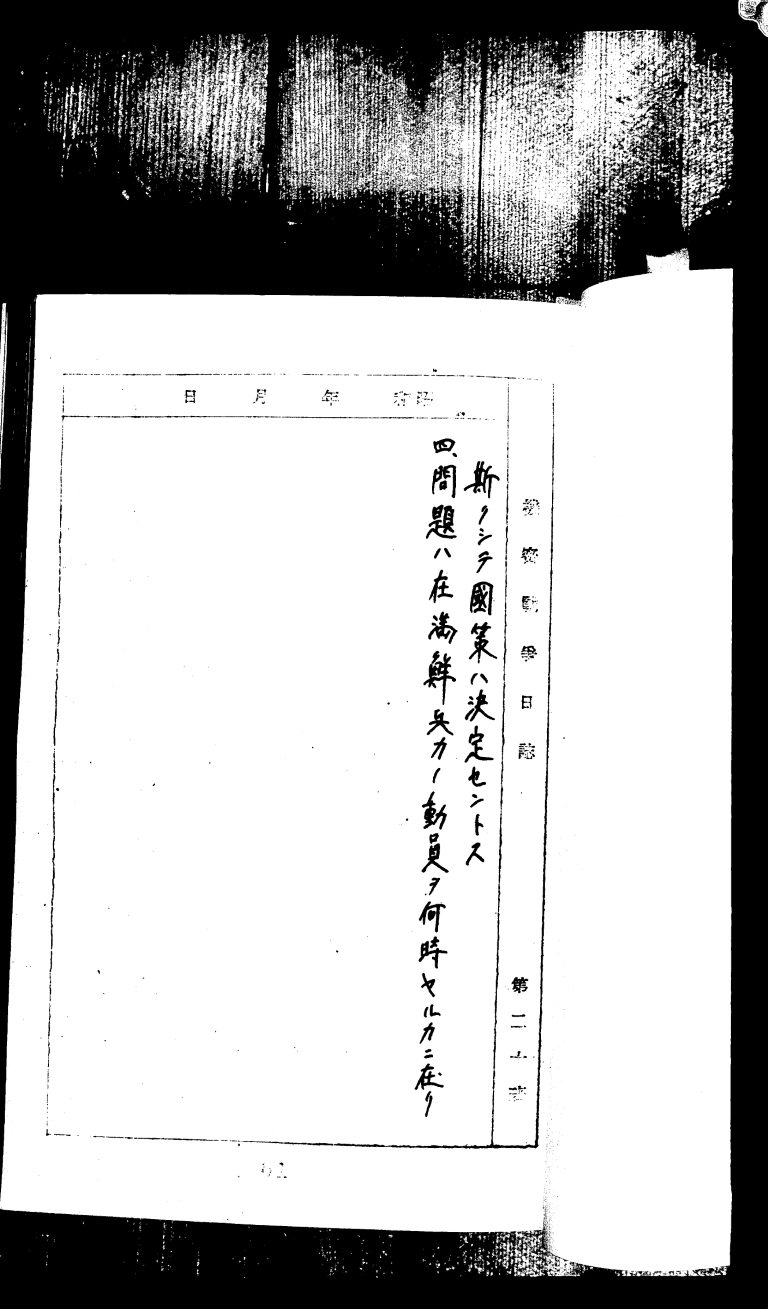 機密戰爭日誌 第二十班
昭和 年 月 日
斯クシテ國策ハ決定セントス
四、問題ハ在満鮮兵力ノ動員ヲ何時ヤルカニ在リ